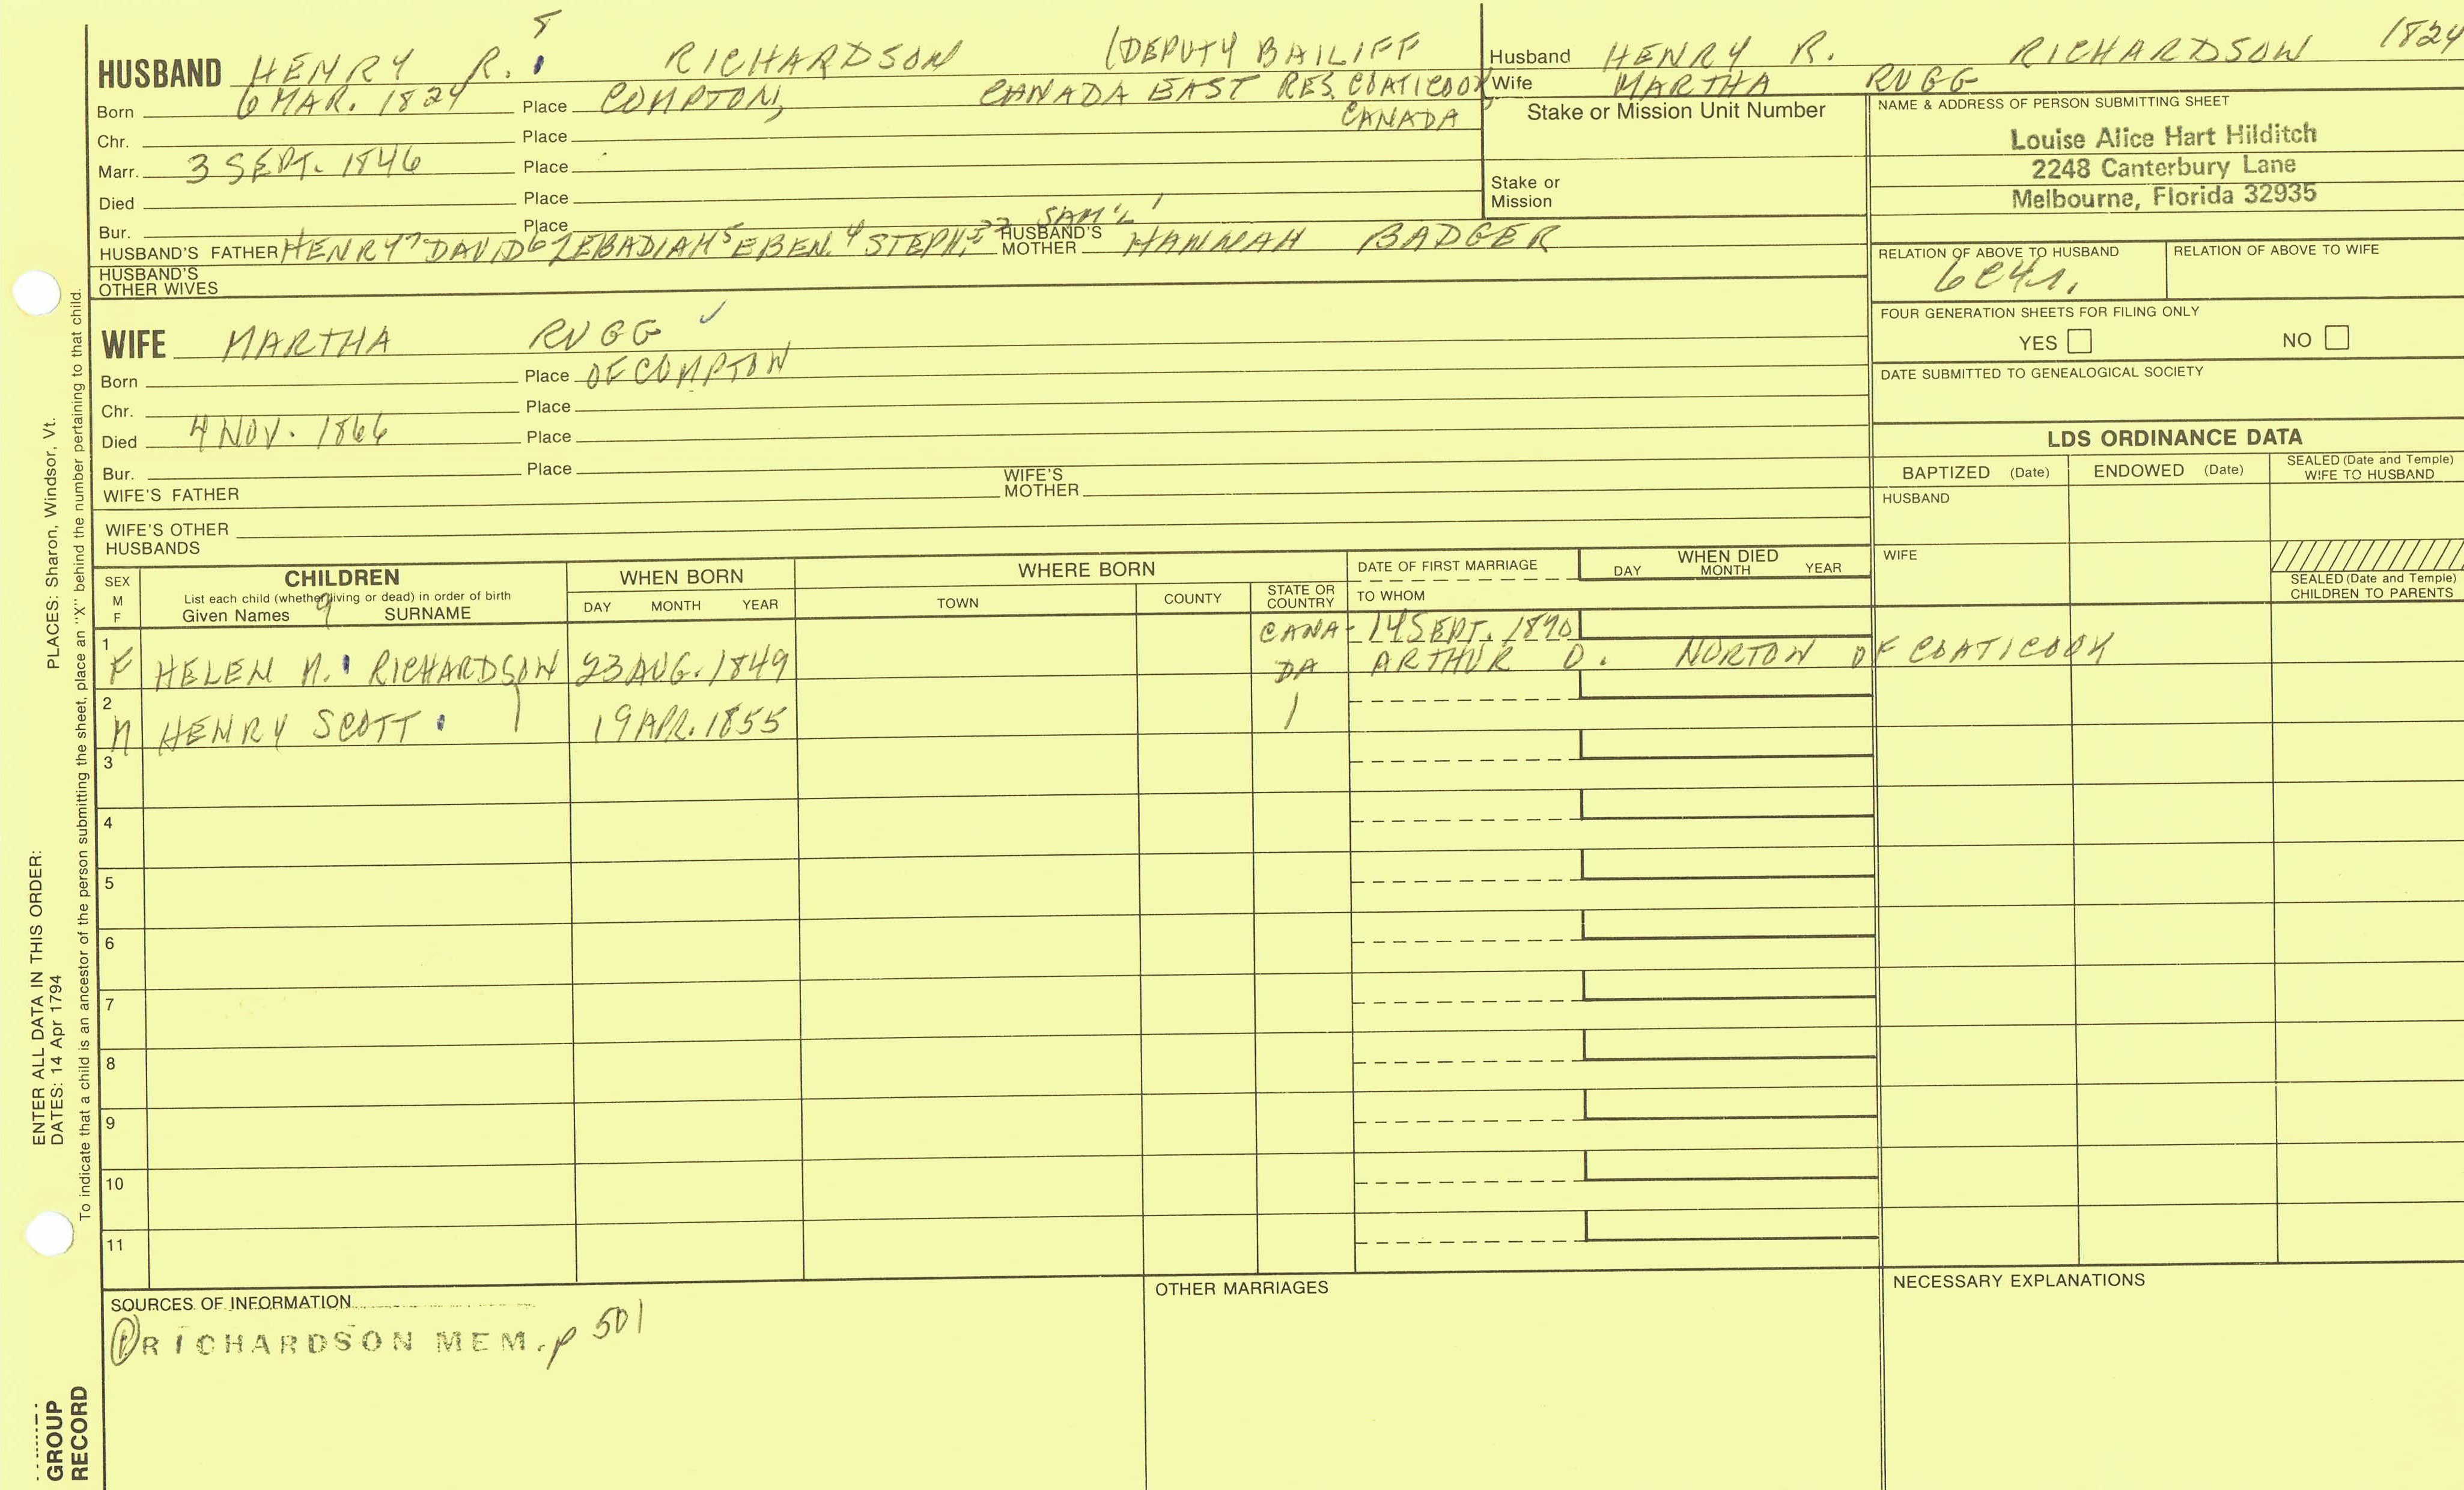 HUSBAND HENRY R. 8 RICHARDSON (DEPUTY BAILIFF
Born 6 MAR. 1824 Place COMPTON, CANADA EAST RES. COATICOOK
CANADA
Chr. Place
Marr. 3 SEPT. 1846 Place
Died Place
Bur. Place
HUSBAND'S FATHER HENRY7 DAVID6 ZEBADIAH5 EBEN.4 STEPH.3 SAM'L1 HUSBAND'S MOTHER HANNAH BADGER
HUSBAND'S OTHER WIVES
Husband HENRY R. RICHARDSON 1824
Wife MARTHA RUGG
Stake or Mission Unit Number
Stake or
Mission
NAME & ADDRESS OF PERSON SUBMITTING SHEET
Louise Alice Hart Hilditch
2248 Canterbury Lane
Melbourne, Florida 32935
RELATION OF ABOVE TO HUSBAND RELATION OF ABOVE TO WIFE
6C4r.
FOUR GENERATION SHEETS FOR FILING ONLY
YES NO
DATE SUBMITTED TO GENEALOGICAL SOCIETY
WIFE MARTHA RUGG ✓
Born Place OF COMPTON
Chr. Place
Died 4 NOV. 1866 Place
Bur. Place
WIFE'S FATHER WIFE'S MOTHER
WIFE'S OTHER
HUSBANDS
LDS ORDINANCE DATA
BAPTIZED (Date) ENDOWED (Date) SEALED (Date and Temple) WIFE TO HUSBAND
HUSBAND
WIFE
SEALED (Date and Temple)
CHILDREN TO PARENTS
SEX M F
CHILDREN
List each child (whether living or dead) in order of birth
Given Names 9 SURNAME
WHEN BORN
DAY MONTH YEAR
WHERE BORN
TOWN COUNTY STATE OR COUNTRY
DATE OF FIRST MARRIAGE
TO WHOM
WHEN DIED
DAY MONTH YEAR
1 F HELEN M. RICHARDSON 23 AUG. 1849 CANADA 14 SEPT. 1870
ARTHUR O. NORTON OF COATICOOK
2 M HENRY SCOTT 19 APR. 1855
3
4
5
6
7
8
9
10
11
SOURCES OF INFORMATION
RICHARDSON MEM. p 501
OTHER MARRIAGES
NECESSARY EXPLANATIONS
ENTER ALL DATA IN THIS ORDER:
DATES: 14 Apr 1794
PLACES: Sharon, Windsor, Vt.
To indicate that a child is an ancestor of the person submitting the sheet, place an "X" behind the number pertaining to that child.
GROUP
RECORD